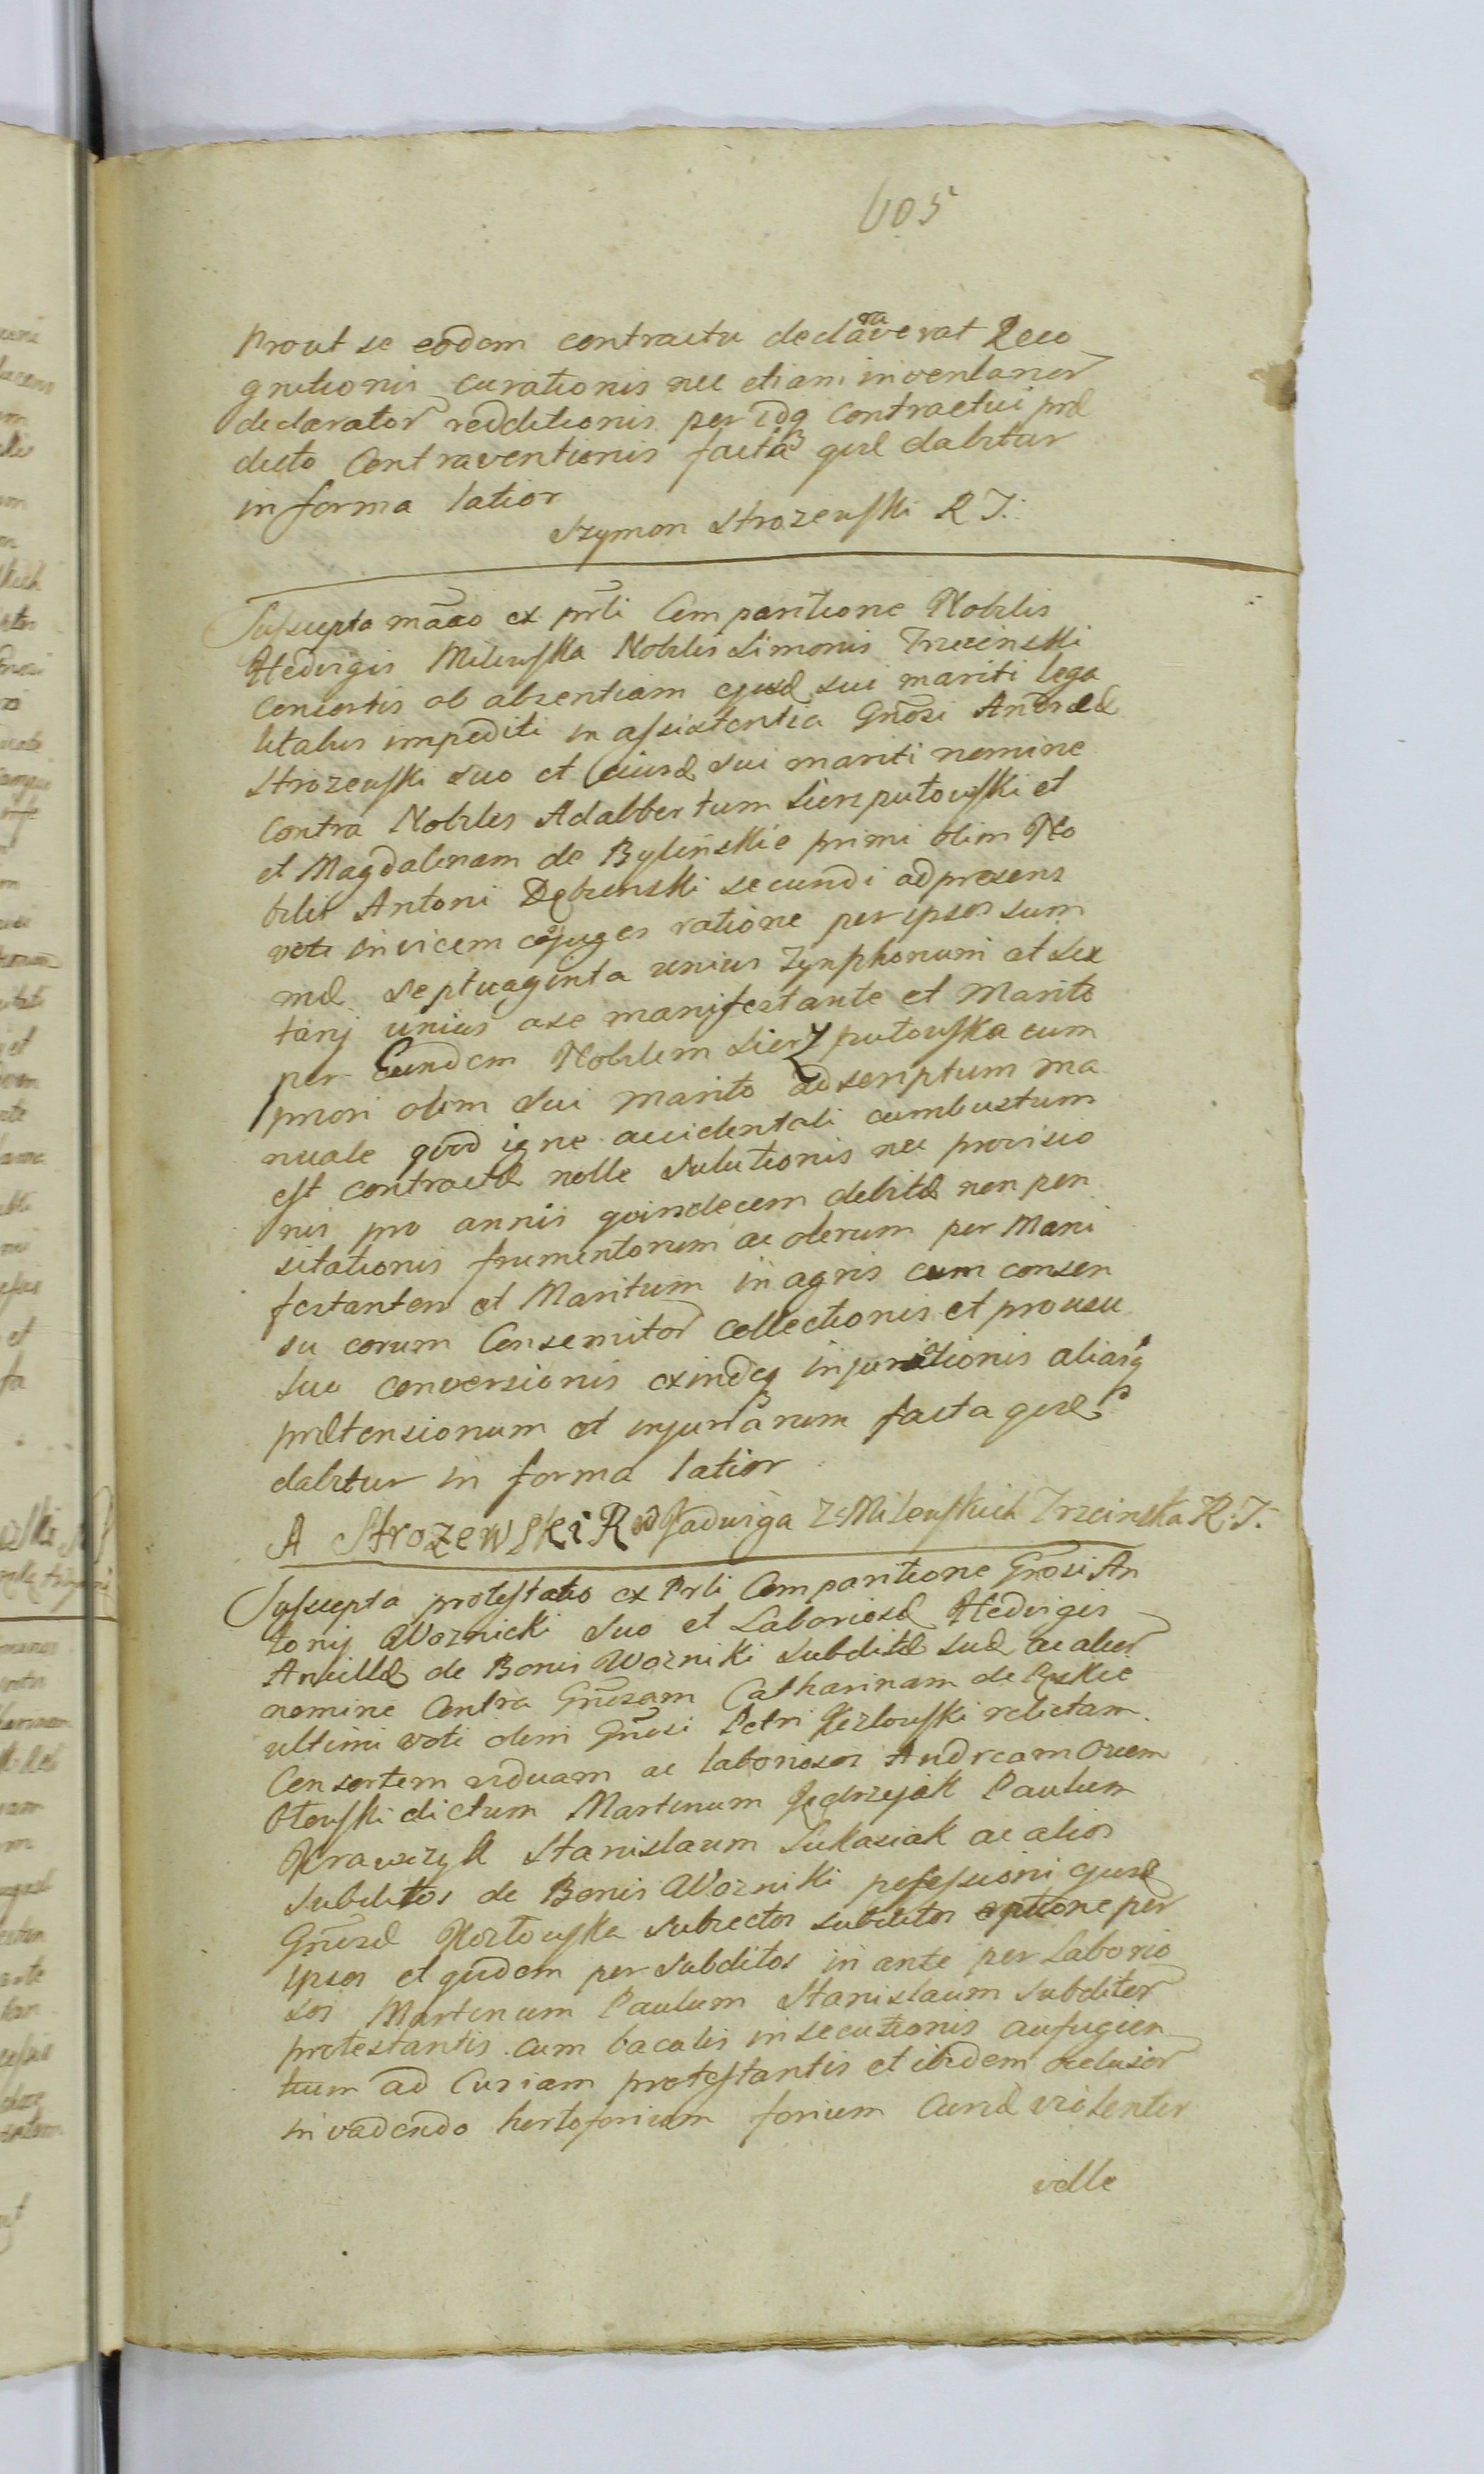 605
Prout se eodem contractu declaraverat Reco
gnitionis curationis nec etiam inventarior
declarator redditionis per idq contractui præ
dicto Contraventionis facta quæ dabitur
in forma latior
Szymon Strozewski R J.
Suscepta maão ex prñli Comparitione Nobilis
Hedvigis Milewska Nobilis Simonis Trzcinski
Consortis ob absentiam ejusd sui mariti lega
litabus impediti in assistentia Gnosi Andreæ
Strozewski suo et eiusd sui mariti nomine
Contra Nobiles Adalbertum Sierzputowski et
et Magdalenam de Bylinskie primi olim No
bilis Antoni Dębinski secundi ad presens
voti invicem cojuges ratione per ipsos sum
mæ septuaginta unius Tynphonum et Sex
tanj unius a se manifestante et Marito
per Eundem Nobilem Sierzputowska cum
priori olim sui marito ad scriptum ma
nuale quod igne accidentali combustum
est contractæ nolle solutionis nec provisio
nis pro annis quindecem debitæ non pen
sitationis frumentorum ac olerum per Mani
festantem et Maritum in agris cum consen
su eorum Consemitor collectionis et pro usu
suo conversionis exindeq injuriationis aliarq
prætensionum et injuriarum facta quæ
dabitur in forma latior
A Strozewski R Jadwiga z Milewskich Trzcinska R. J.
Suscepta protestatio ex Prli Comparitione Gnosi An
tonij Woznicki suo et Laboriosæ Hedvigis
Ancillæ de Bonis Wozniki subditæ suæ ac alior
nomine Contra Gnosam Catharinam de
ultimi voti olim Gnosi Petri Kozlowski relictam
Consortem viduam ac laboriosos Andream
dictum Martinum Jędrzejak Paulum
Krawczyk Stanislaum Lukasiak ac alios
subditos de Bonis Wozniki possessioni ejusd
Gnosæ Kozłowska subiectos subditos per
ipsos et quidem per subditos in ante per Laborio
sos Martinum Paulum Stanislaum subditor
protestantis cum baculis insecutionis aufugien
tium ad Curiam protestantis et ibidem oclusor
invadendo forium Curiæ violenter
velle